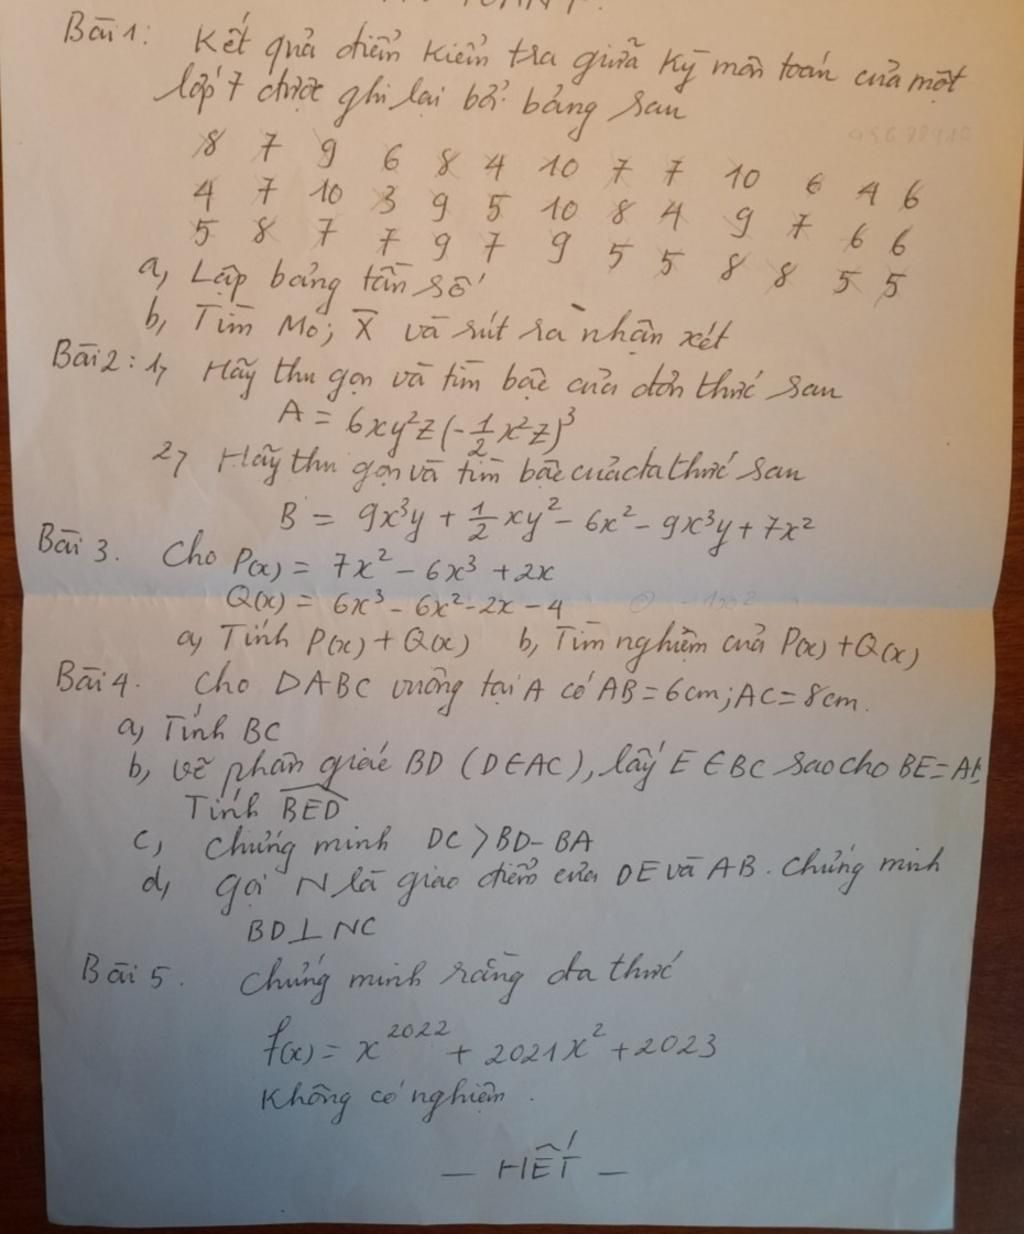 Bài 1: Kết quả điểm kiểm tra giữa kỳ môn toán của một
lớp 7 được ghi lại bởi bảng sau
8 7 9 6 8 4 10 7 7 10 6 4 6
4 7 10 3 9 5 10 8 4 9 7 6 6
5 8 7 7 9 7 9 5 5 8 8 5 5
a, Lập bảng tần số
b, Tìm Mo; X̄ và rút ra nhận xét
Bài 2: 1, Hãy thu gọn và tìm bậc của đơn thức sau
A = 6xy²z(-1/2x²z)³
2, Hãy thu gọn và tìm bậc của đa thức sau
B = 9x³y + 1/2xy² - 6x² - 9x³y + 7x²
Bài 3. Cho P(x) = 7x² - 6x³ + 2x
Q(x) = 6x³ - 6x² - 2x - 4
a, Tính P(x) + Q(x) b, Tìm nghiệm của P(x) + Q(x)
Bài 4. Cho DABC vuông tại A có AB = 6cm; AC = 8cm.
a, Tính BC
b, vẽ phân giác BD (D∈AC), lấy E∈BC sao cho BE=AB
Tính B̂ED
c, Chứng minh DC > BD - BA
d, gọi N là giao điểm của DE và AB. Chứng minh
BD ⊥ NC
Bài 5. Chứng minh rằng đa thức
f(x) = x²⁰²² + 2021x² + 2023
Không có nghiệm.
— HẾT —